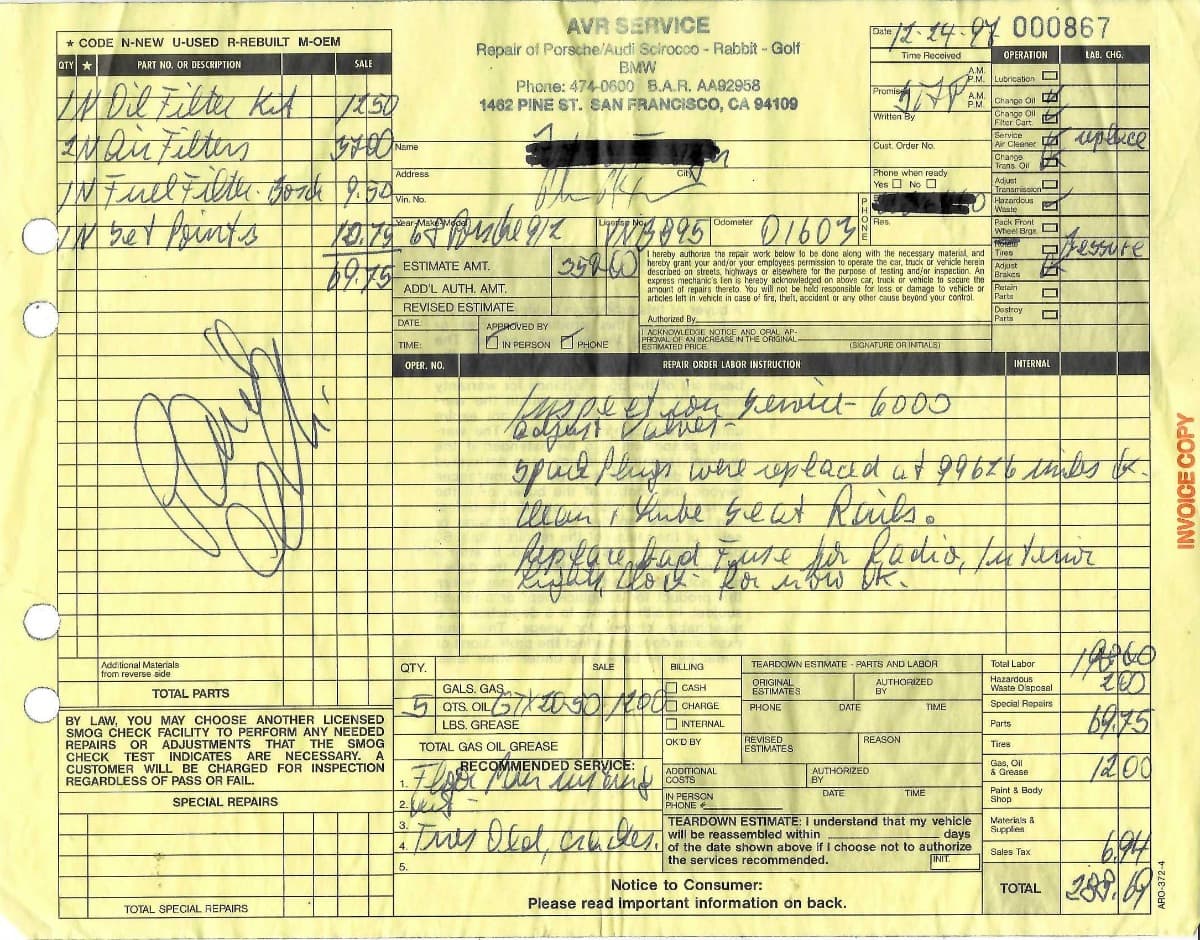 AVR SERVICE
Repair of Porsche/Audi Scirocco - Rabbit - Golf
BMW
Phone: 474-0600 B.A.R. AA92958
1462 PINE ST. SAN FRANCISCO, CA 94109
Date 12-24-97 000867
★ CODE N-NEW U-USED R-REBUILT M-OEM
QTY ★ PART NO. OR DESCRIPTION SALE
1 N Oil Filter Kit 12 50
2 N Air Filters 37 00
1 N Fuel Filter. Bosch 9. 50
1 N Set Points 10. 75
69. 75
Time Received A.M. P.M.
Promised A.M. P.M.
Written By
Name
Cust. Order No.
Address City
Phone when ready
Yes No
Vin. No.
PHONE Res.
Year-Make-Model Porsche 912 License No. Odometer 01603
ESTIMATE AMT. 359 60
ADD'L AUTH. AMT.
REVISED ESTIMATE
DATE: APPROVED BY
TIME: IN PERSON PHONE
I hereby authorize the repair work below to be done along with the necessary material, and
hereby grant your and/or your employees permission to operate the car, truck or vehicle herein
described on streets, highways or elsewhere for the purpose of testing and/or inspection. An
express mechanic's lien is hereby acknowledged on above car, truck or vehicle to secure the
amount of repairs thereto. You will not be held responsible for loss or damage to vehicle or
articles left in vehicle in case of fire, theft, accident or any other cause beyond your control.
Authorized By
I ACKNOWLEDGE NOTICE AND ORAL AP-
PROVAL OF AN INCREASE IN THE ORIGINAL
ESTIMATED PRICE. (SIGNATURE OR INITIALS)
OPERATION LAB. CHG.
Lubrication
Change Oil
Change Oil Filter Cart.
Service Air Cleaner replace
Change Trans. Oil
Adjust Transmission
Hazardous Waste
Pack Front Wheel Brgs.
Tires Pressure
Adjust Brakes
Retain Parts
Destroy Parts
OPER. NO. REPAIR ORDER LABOR INSTRUCTION INTERNAL
Inspection Service - 6000
adjust Valves -
Spark Plugs were replaced at 99626 miles ok.
Clean + Lube Seat Rails.
Replace bad Fuse for Radio, Interior
Lights, Clock - For now OK.
INVOICE COPY
Additional Materials
from reverse side
TOTAL PARTS
BY LAW, YOU MAY CHOOSE ANOTHER LICENSED
SMOG CHECK FACILITY TO PERFORM ANY NEEDED
REPAIRS OR ADJUSTMENTS THAT THE SMOG
CHECK TEST INDICATES ARE NECESSARY. A
CUSTOMER WILL BE CHARGED FOR INSPECTION
REGARDLESS OF PASS OR FAIL.
SPECIAL REPAIRS
TOTAL SPECIAL REPAIRS
QTY. SALE
GALS. GAS
5 QTS. OIL GTX 20-50 12 00
LBS. GREASE
TOTAL GAS OIL GREASE
RECOMMENDED SERVICE:
1. Floor
2.
3.
4. Tires Old, cracks.
5.
BILLING
CASH
CHARGE
INTERNAL
OK'D BY
ADDITIONAL COSTS
IN PERSON
PHONE #
TEARDOWN ESTIMATE - PARTS AND LABOR
ORIGINAL ESTIMATES AUTHORIZED BY
PHONE DATE TIME
REVISED ESTIMATES REASON
AUTHORIZED BY
DATE TIME
TEARDOWN ESTIMATE: I understand that my vehicle
will be reassembled within days
of the date shown above if I choose not to authorize
the services recommended. INIT.
Notice to Consumer:
Please read important information on back.
Total Labor
Hazardous Waste Disposal 2 00
Special Repairs
Parts 69.75
Tires
Gas, Oil & Grease 12 00
Paint & Body Shop
Materials & Supplies
Sales Tax 6.94
TOTAL 288.69
ARO-372-4